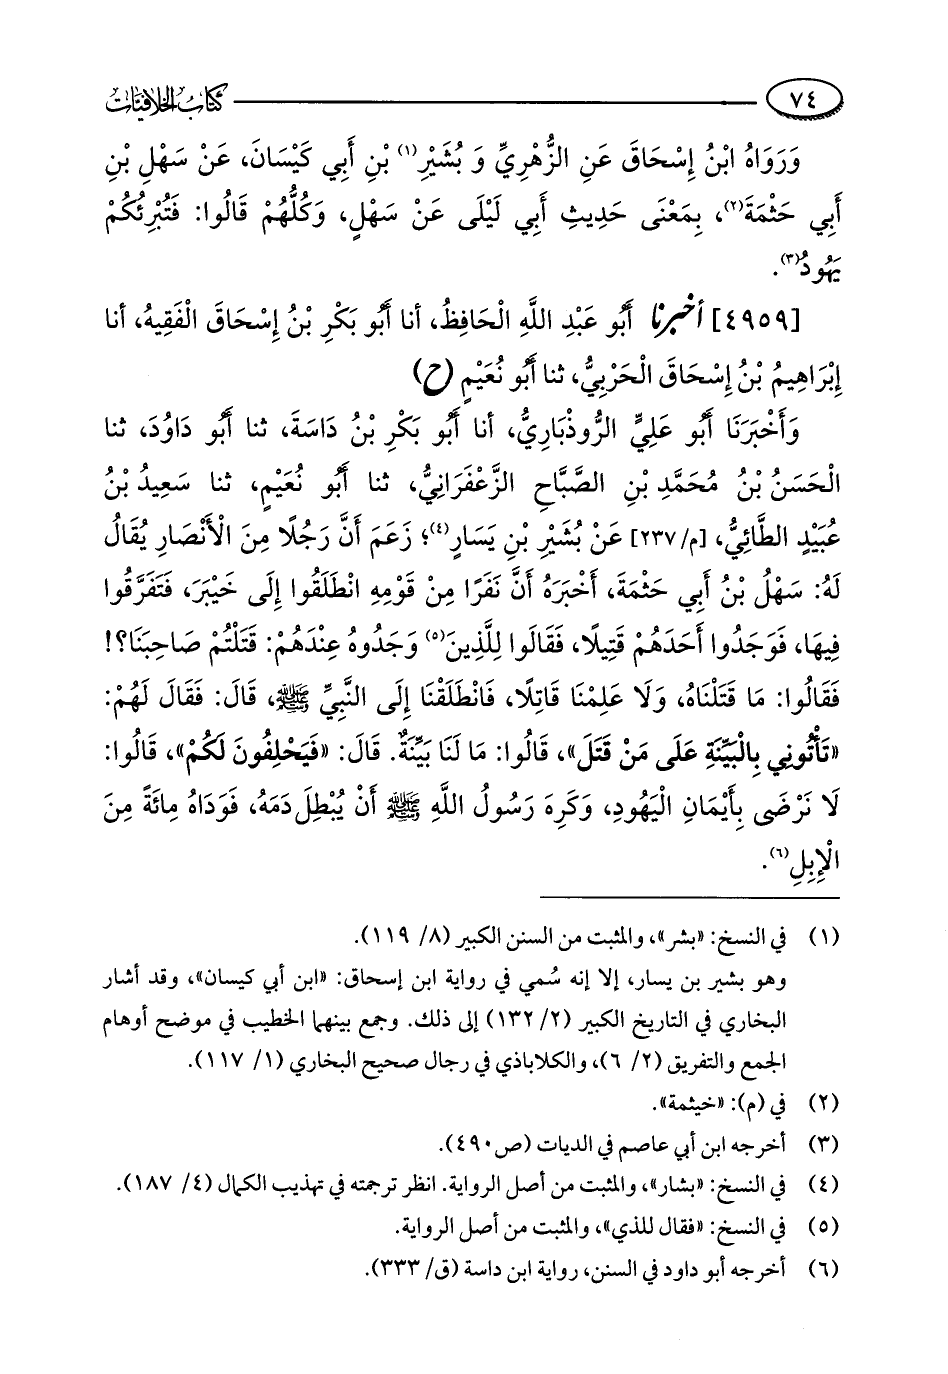 ٧٤ كتاب الخلافيات
وَرَوَاهُ ابْنُ إِسْحَاقَ عَنِ الزُّهْرِيِّ وَ بُشَيْرِ(١) بْنِ أَبِي كَيْسَانَ، عَنْ سَهْلِ بْنِ
أَبِي حَثْمَةَ(٢)، بِمَعْنَى حَدِيثِ أَبِي لَيْلَى عَنْ سَهْلٍ، وَكُلُّهُمْ قَالُوا: فَتُبْرِئُكُمْ
يَهُودُ(٣).
[٤٩٥٩] أخْبرنا أَبُو عَبْدِ اللَّهِ الْحَافِظُ، أنا أَبُو بَكْرِ بْنُ إِسْحَاقَ الْفَقِيهُ، أنا
إِبْرَاهِيمُ بْنُ إِسْحَاقَ الْحَرْبِيُّ، ثنا أَبُو نُعَيْمٍ (ح)
وَأَخْبَرَنَا أَبُو عَلِيٍّ الرُّوذْبَارِيُّ، أنا أَبُو بَكْرِ بْنُ دَاسَةَ، ثنا أَبُو دَاوُدَ، ثنا
الْحَسَنُ بْنُ مُحَمَّدِ بْنِ الصَّبَّاحِ الزَّعْفَرَانِيُّ، ثنا أَبُو نُعَيْمٍ، ثنا سَعِيدُ بْنُ
عُبَيْدٍ الطَّائِيُّ، [م/ ٢٣٧] عَنْ بُشَيْرِ بْنِ يَسَارٍ(٤)؛ زَعَمَ أَنَّ رَجُلًا مِنَ الْأَنْصَارِ يُقَالُ
لَهُ: سَهْلُ بْنُ أَبِي حَثْمَةَ، أَخْبَرَهُ أَنَّ نَفَرًا مِنْ قَوْمِهِ انْطَلَقُوا إِلَى خَيْبَرَ، فَتَفَرَّقُوا
فِيهَا، فَوَجَدُوا أَحَدَهُمْ قَتِيلًا، فَقَالُوا لِلَّذِينَ(٥) وَجَدُوهُ عِنْدَهُمْ: قَتَلْتُمْ صَاحِبَنَا؟!
فَقَالُوا: مَا قَتَلْنَاهُ، وَلَا عَلِمْنَا قَاتِلًا، فَانْطَلَقْنَا إِلَى النَّبِيِّ ﷺ، قَالَ: فَقَالَ لَهُمْ:
«تَأْتُونِي بِالْبَيِّنَةِ عَلَى مَنْ قَتَلَ»، قَالُوا: مَا لَنَا بَيِّنَةٌ. قَالَ: «فَيَحْلِفُونَ لَكُمْ»، قَالُوا:
لَا نَرْضَى بِأَيْمَانِ الْيَهُودِ، وَكَرِهَ رَسُولُ اللَّهِ ﷺ أَنْ يُبْطِلَ دَمَهُ، فَوَدَاهُ مِائَةً مِنَ
الْإِبِلِ(٦).
(١) في النسخ: «بشر»، والمثبت من السنن الكبير (٨/ ١١٩).
وهو بشير بن يسار، إلا إنه سُمي في رواية ابن إسحاق: «ابن أبي كيسان»، وقد أشار
البخاري في التاريخ الكبير (٢/ ١٣٢) إلى ذلك. وجمع بينهما الخطيب في موضح أوهام
الجمع والتفريق (٢/ ٦)، والكلاباذي في رجال صحيح البخاري (١/ ١١٧).
(٢) في (م): «خيثمة».
(٣) أخرجه ابن أبي عاصم في الديات (ص٤٩٠).
(٤) في النسخ: «بشار»، والمثبت من أصل الرواية. انظر ترجمته في تهذيب الكمال (٤/ ١٨٧).
(٥) في النسخ: «فقال للذي»، والمثبت من أصل الرواية.
(٦) أخرجه أبو داود في السنن، رواية ابن داسة (ق/ ٣٣٣).